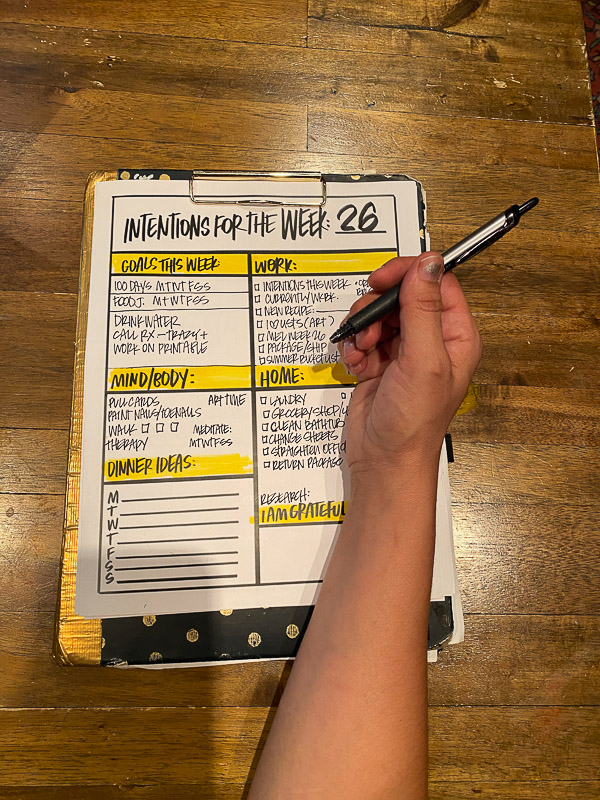 INTENTIONS FOR THE WEEK: 26
GOALS THIS WEEK:
100 DAYS MTWTFSS
FOOD J. MTWTFSS
DRINK WATER
CALL RX - TRAZY +
WORK ON PRINTABLE
WORK:
INTENTIONS THIS WEEK
CURRENTLY WORK.
NEW RECIPE:
102 USTS (ART)
MEL WEEK 26
PACKAGE/SHIP
SUMMER BUCKET LIST
MIND/BODY:
PULL CARDS ART TIME
PAINT NAILS/TOENAILS
WALK MEDITATE:
THERAPY MTWTFSS
HOME:
LAUNDRY
GROCERY SHOP/
CLEAN BATHTUB
CHANGE SHEETS
STRAIGHTEN OFFIC
RETURN PACKAGE
RESEARCH:
DINNER IDEAS:
M
T
W
T
F
S
S
I AM GRATEFUL